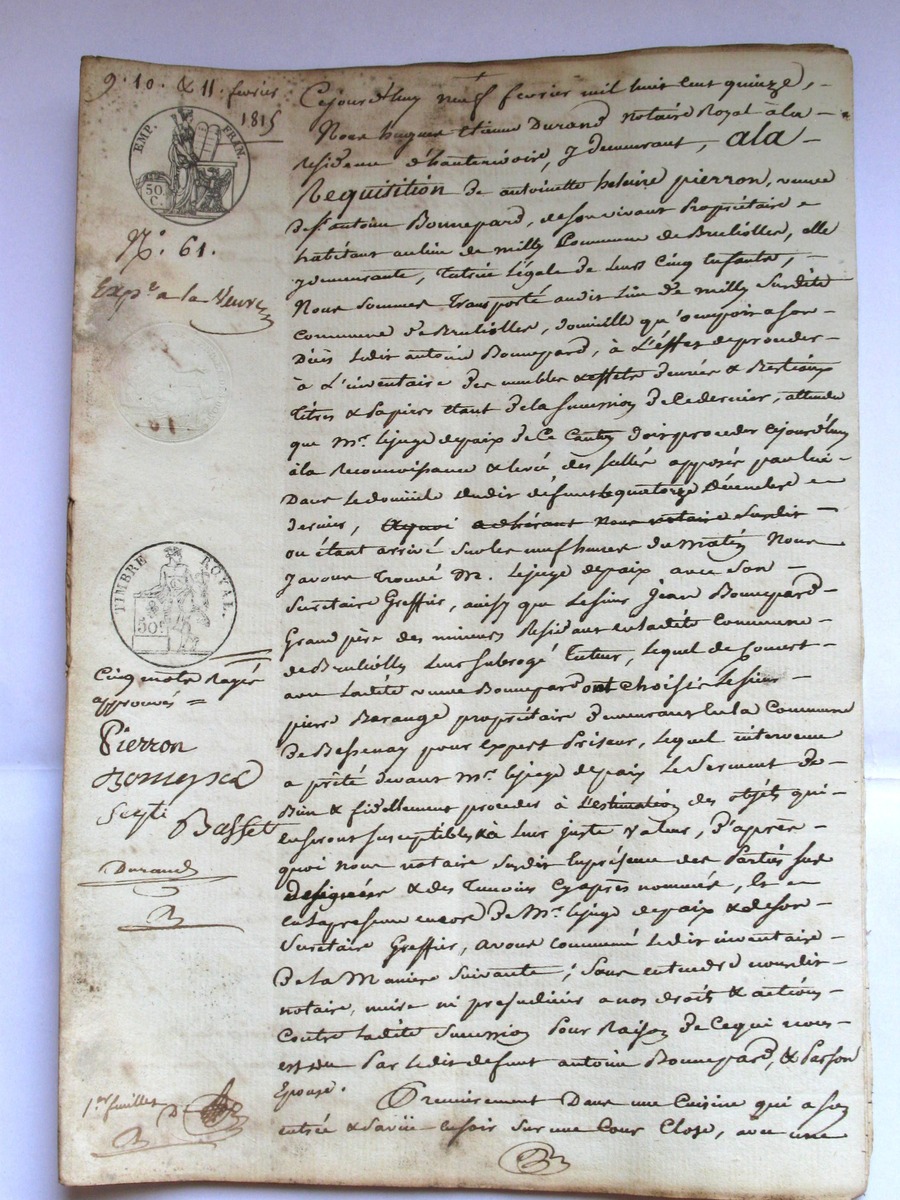 9. 10. & 11. fevrier
1815
EMP. FRAN.
50 C.
N.° 61.
Exp.e a la Veuve
TIMBRE ROYAL.
50 c
Cinq mots Rayés
approuvés =
Pierron
Basset
Durand
1.er feuillet
D
Cejourdhuy neuf fevrier mil huit cent quinze, –
Nous hugues Etienne Durand notaire Royal à la –
residence d'hauterivoire, y demeurant, ala –
Requisition de antoinette heleine pierron, veuve
de ft. antoine Bonnepard, de son vivant Propriétaire e
habitant au lieu de milly Commune de Brulliolles, elle
y demeurante, tutrice légale de leurs Cinq Enfants, –
Nous sommes transporté audit lieu de milly Susdite
Commune de Brulliolles, domicile qu'occupoit a son –
Décès ledit antoine Bonnepard, à L'effet de proceder –
à L'inventaire des meubles & effets denrées & Bestiaux
titres & papiers Etant de la succession de ce dernier, attendu
que mr. lejuge depaix de Ce Canton doit proceder cejourdhuy
à la Reconnoissance & levée des scellés apposés par lui –
Dans le domicile dudit défunt le quatorze Décembre
dernier, a quoi adhérant nous notaire Susdit –
ou étant arrivé sur les neuf heures du Matin Nous
y avons trouvé M. lejuge depaix avec son –
Secretaire Greffier, ainsy que le sieur jean Bonnepard –
Grand père des mineurs Residant en ladite Commune –
de Brulliolles leur subrogé tuteur, lequel de Concert –
avec ladite veuve Bonnepard ont choisi le sieur –
pierre Barange propriétaire demeurant en la Commune
de Bessenay pour Expert Priseur, lequel intervenu
a prêté devant mr. lejuge depaix le serment de –
Bien & fidellement proceder à l'estimation des objets qui –
en seront susceptibles & à leur juste valeur, D'après –
quoi nous notaire susdit en présence des Parties sus
designées & des temoins Cyaprès nommés, Et en
la présence encore de Mr. lejuge depaix & de son –
Secretaire Greffier, avons commencé ledit inventaire –
De la Maniere suivante; sans entendre nous dit –
notaire, nuire ni prejudicier a nos droits & actions –
Contre ladite Succession pour Raison de Cequi nous –
est du par ledit defunt antoine Bonnepard, & par son
Epouse.
Premierement Dans une Cuisine qui a son
entrée & Sur une Cour Close, avec une